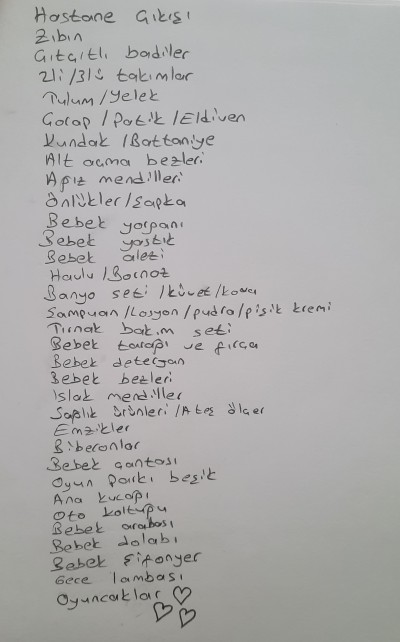 Hastane Çıkışı
Zıbın
Çıtçıtlı badiler
2li/3lü takımlar
Tulum/Yelek
Çorap/Patik/Eldiven
Kundak/Battaniye
Alt açma bezleri
Ağız mendilleri
Önlükler/Şapka
Bebek yorganı
Bebek yastık
Bebek alezi
Havlu/Bornoz
Banyo seti/küvet/kova
Şampuan/Losyon/pudra/pişik kremi
Tırnak bakım seti
Bebek tarağı ve fırça
Bebek deterjan
Bebek bezleri
Islak mendiller
Sağlık ürünleri/Ateş ölçer
Emzikler
Biberonlar
Bebek çantası
Oyun parkı beşik
Ana kucağı
Oto koltuğu
Bebek arabası
Bebek dolabı
Bebek Şifonyer
Gece lambası
Oyuncaklar